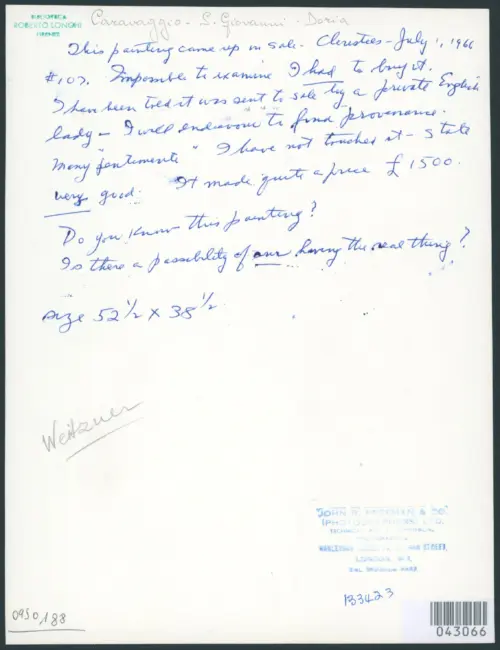 FOTOTECA
ROBERTO LONGHI
FIRENZE
Caravaggio - S. Giovanni - Doria
This painting came up in sale - Christies - July 1, 1966
#107. Impossible to examine I had to buy it.
I have been told it was sent to sale by a private English
lady - I will endeavour to find provenance.
Many "pentimenti" I have not touched it - State
very good. It made quite a price £1500.
Do you know this painting?
Is there a possibility of our having the real thing?
size 52 1/2 x 38 1/2
Weitzner
JOHN R. & CO.
LTD.
LONDON, W.1.
133423
0950188
043066